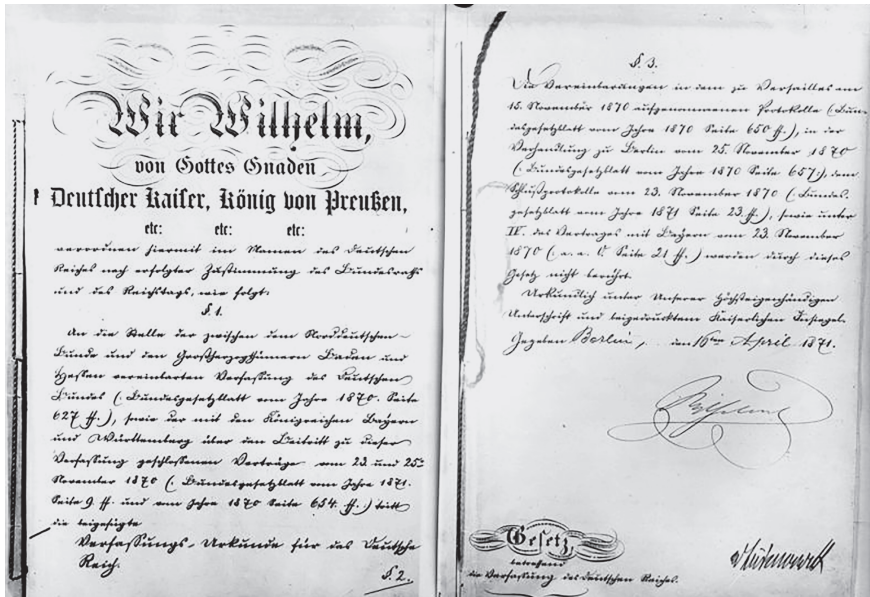 Wir Wilhelm,
von Gottes Gnaden
Deutscher Kaiser, König von Preußen,
etc: etc: etc:
verordnen hiermit im Namen des Deutschen
Reiches nach erfolgter Zustimmung des Bundesraths
und des Reichstags, wie folgt:
§. 1.
An die Stelle der zwischen dem Norddeutschen
Bunde und den Großherzogthümern Baden und
Hessen vereinbarten Verfassung des Deutschen
Bundes (: Bundesgesetzblatt vom Jahre 1870. Seite
627 ff.), sowie der mit den Königreichen Bayern
und Württemberg über den Beitritt zu dieser
Verfassung geschlossenen Verträge vom 23. und 25.
November 1870 (: Bundesgesetzblatt vom Jahre 1871.
Seite 9. ff. und vom Jahre 1870 Seite 654. ff.) tritt
die beigefügte
Verfassungs-Urkunde für das Deutsche
Reich.
§. 2.
§. 3.
Die Vereinbarungen in dem zu Versailles am
15. November 1870 aufgenommenen Protokolle (: Bun-
desgesetzblatt vom Jahre 1870 Seite 650 ff.), in der
Verhandlung zu Berlin vom 25. November 1870
(: Bundesgesetzblatt vom Jahre 1870 Seite 657:), dem
Schlußprotokolle vom 23. November 1870 (: Bundes-
gesetzblatt vom Jahre 1871 Seite 23. ff.), sowie unter
IV. des Vertrages mit Bayern vom 23. November
1870 (: a. a. O. Seite 21 ff.) werden durch dieses
Gesetz nicht berührt.
Urkundlich unter Unserer Höchsteigenhändigen
Unterschrift und beigedrucktem Kaiserlichen Insiegel.
Gegeben Berlin, den 16ten April 1871.
Wilhelm
Gesetz,
betreffend
die Verfassung des Deutschen Reiches.